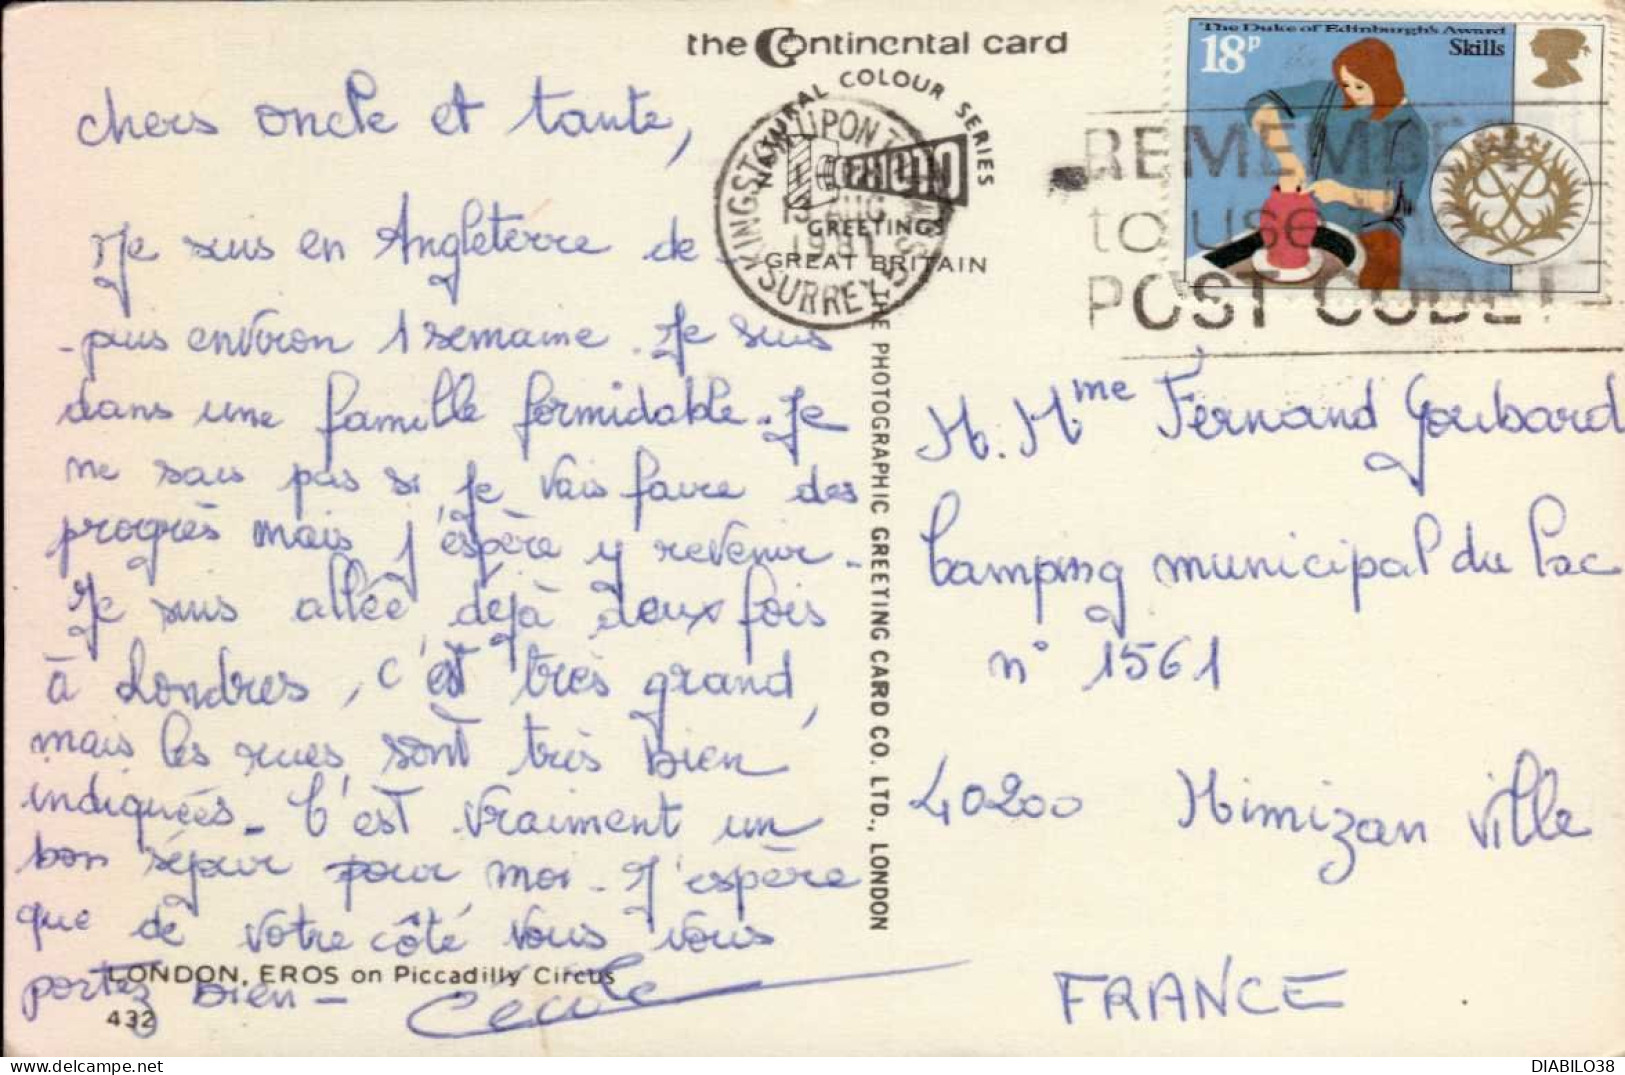 the Continental card
NATURAL COLOUR SERIES
GREETINGS
GREAT BRITAIN
KINGSTON UPON THAMES
13 AUG
1981
SURREY
The Duke of Edinburgh's Award
18P
Skills
REMEMBER
to USE THE
POST CODE!
chers oncle et tante,
Je suis en Angleterre de-
-puis environ 1 semaine. Je suis
dans une famille formidable. Je
ne sais pas si je vais faire des
progrès mais j'espère y revenir.
Je suis allée déjà deux fois
à Londres, c'est très grand,
mais les rues sont très bien
indiquées. C'est vraiment un
bon séjour pour moi. J'espère
que de votre côté vous vous
portez bien -
Cécile
LONDON, EROS on Piccadilly Circus
432
THE PHOTOGRAPHIC GREETING CARD CO. LTD., LONDON
M. Mme Fernand Goubard
Camping municipal du lac
n° 1561
40200 Mimizan ville
FRANCE
DIABILO38